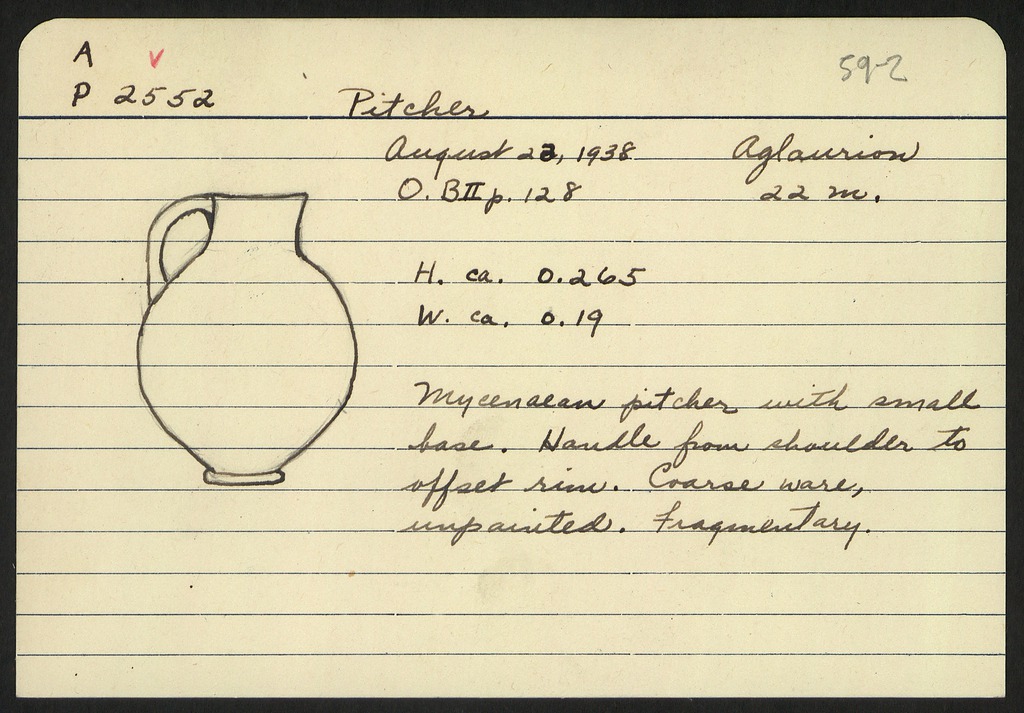 A v 59-2
P 2552 Pitcher
August 23, 1938 Aglaurion
O. BII p. 128 22 m.
H. ca. 0.265
W. ca. 0.19
Mycenaean pitcher with small
base. Handle from shoulder to
offset rim. Coarse ware,
unpainted. Fragmentary.